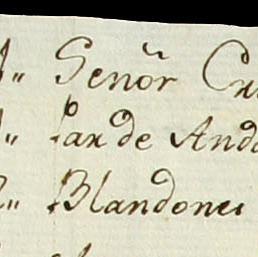 1,, Señor Cru
1,, Par de Anda
2,, Blandones